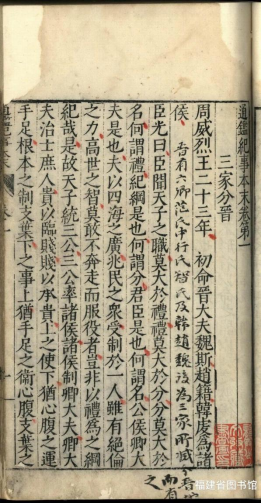 通鑑紀事本末卷第一
三家分晉
周威烈王二十三年 初命晉大夫魏斯趙籍韓虔為諸
侯
臣光曰臣聞天子之職莫大於禮禮莫大於分分莫大於
名何謂禮紀綱是也何謂分君臣是也何謂名公侯卿大
夫是也夫以四海之廣兆民之衆受制於一人雖有絕倫
之力高世之智莫敢不奔走而服役者豈非以禮為之
紀哉是故天子統三公三公率諸侯諸侯制卿大夫卿大
夫治士庶人貴以臨賤賤以承貴上之使下猶心腹之運
手足根本之制支葉下之事上猶手足之衛心腹支葉之
福建省图书馆